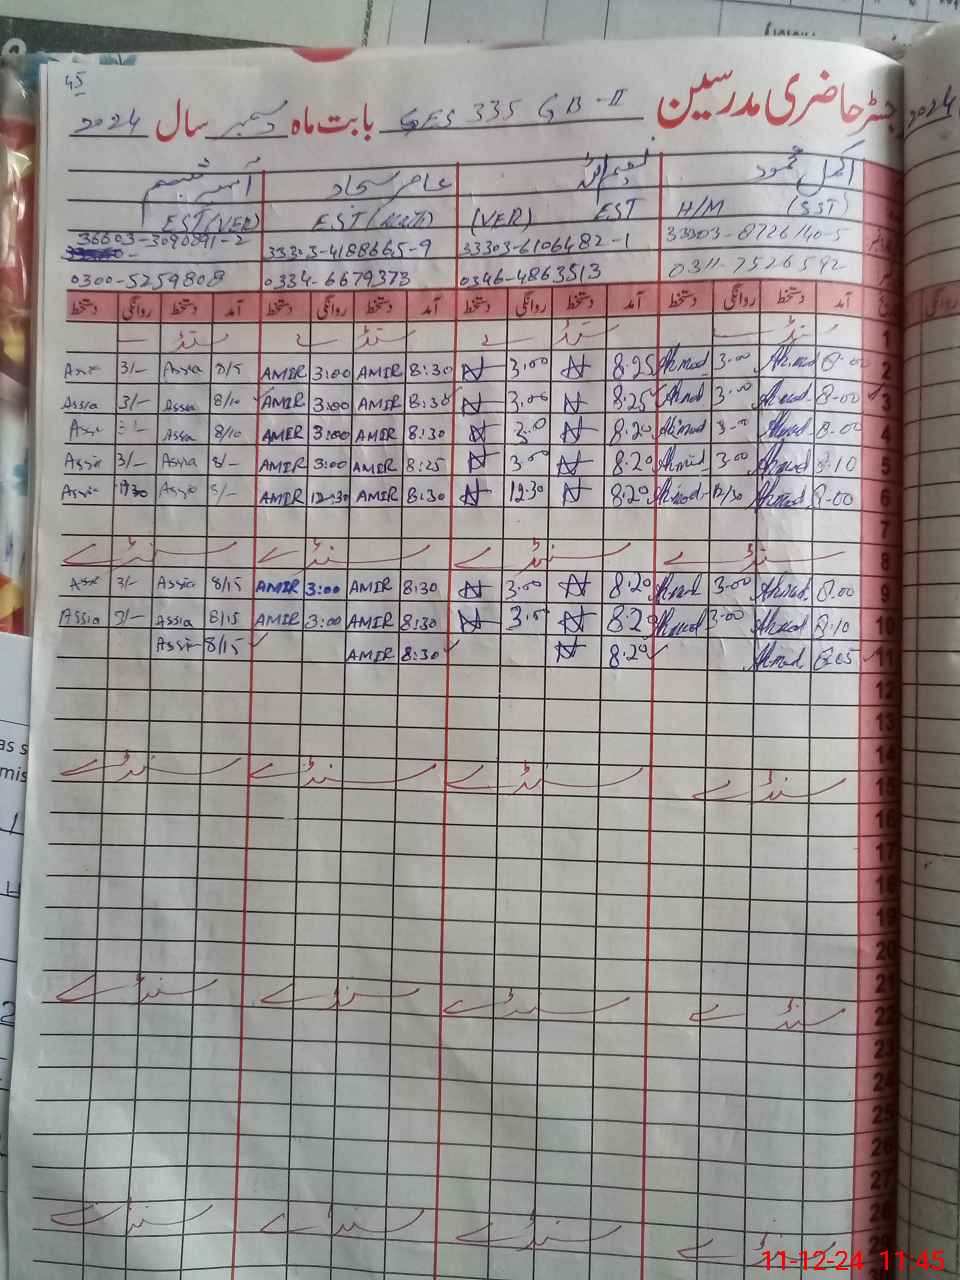 45
رجسٹر حاضری مدرسین GES 335 GB-II بابت ماہ دسمبر سال 2024
2024
اکمل محمود عامر سجاد آسیہ
H/M (SST) (VER) EST EST (Math) EST (VER)
33303-8726140-5 33303-6106482-1 33303-4188665-9 36603-3090891-2
0311-7526592 0346-4863513 0334-6679373 0300-5259808
آمد دستخط روانگی دستخط آمد دستخط روانگی دستخط آمد دستخط روانگی دستخط آمد دستخط روانگی دستخط
1 سنڈے سنڈے سنڈے سنڈے
2 8.00 Ahmad 3.00 Ahmad 8.25 N 3.00 N 8:30 AMIR 3:00 AMIR 8/5 Assia 3/- Assia
3 8.00 Ahmad 3.00 Ahmad 8.25 N 3.00 N 8:30 AMIR 3:00 AMIR 8/10 Assia 3/- Assia
4 8.00 Ahmad 3.00 Ahmad 8.20 N 3.00 N 8:30 AMIR 3:00 AMIR 8/10 Assia 3/- Assia
5 8.10 Ahmad 3.00 Ahmad 8.20 N 3.00 N 8:25 AMIR 3:00 AMIR 8/- Assia 3/- Assia
6 8.00 Ahmad 12/30 Ahmad 8.20 N 12.30 N 8:30 AMIR 12:30 AMIR 8/- Assia 12/30 Assia
7
8 سنڈے سنڈے سنڈے سنڈے
9 8.00 Ahmad 3.00 Ahmad 8.20 N 3.00 N 8:30 AMIR 3:00 AMIR 8/15 Assia 3/- Assia
10 8.10 Ahmad 3.00 Ahmad 8.20 N 3.00 N 8:30 AMIR 3:00 AMIR 8/15 Assia 3/- Assia
11 8.05 Ahmad 8.20 N 8:30 AMIR 8/15 Assia
12
13
14
15 سنڈے سنڈے سنڈے سنڈے
16
17
18
19
20
21
22 سنڈے سنڈے سنڈے سنڈے
23
24
25
26
27
28
29 سنڈے سنڈے سنڈے سنڈے
11-12-24 11:45